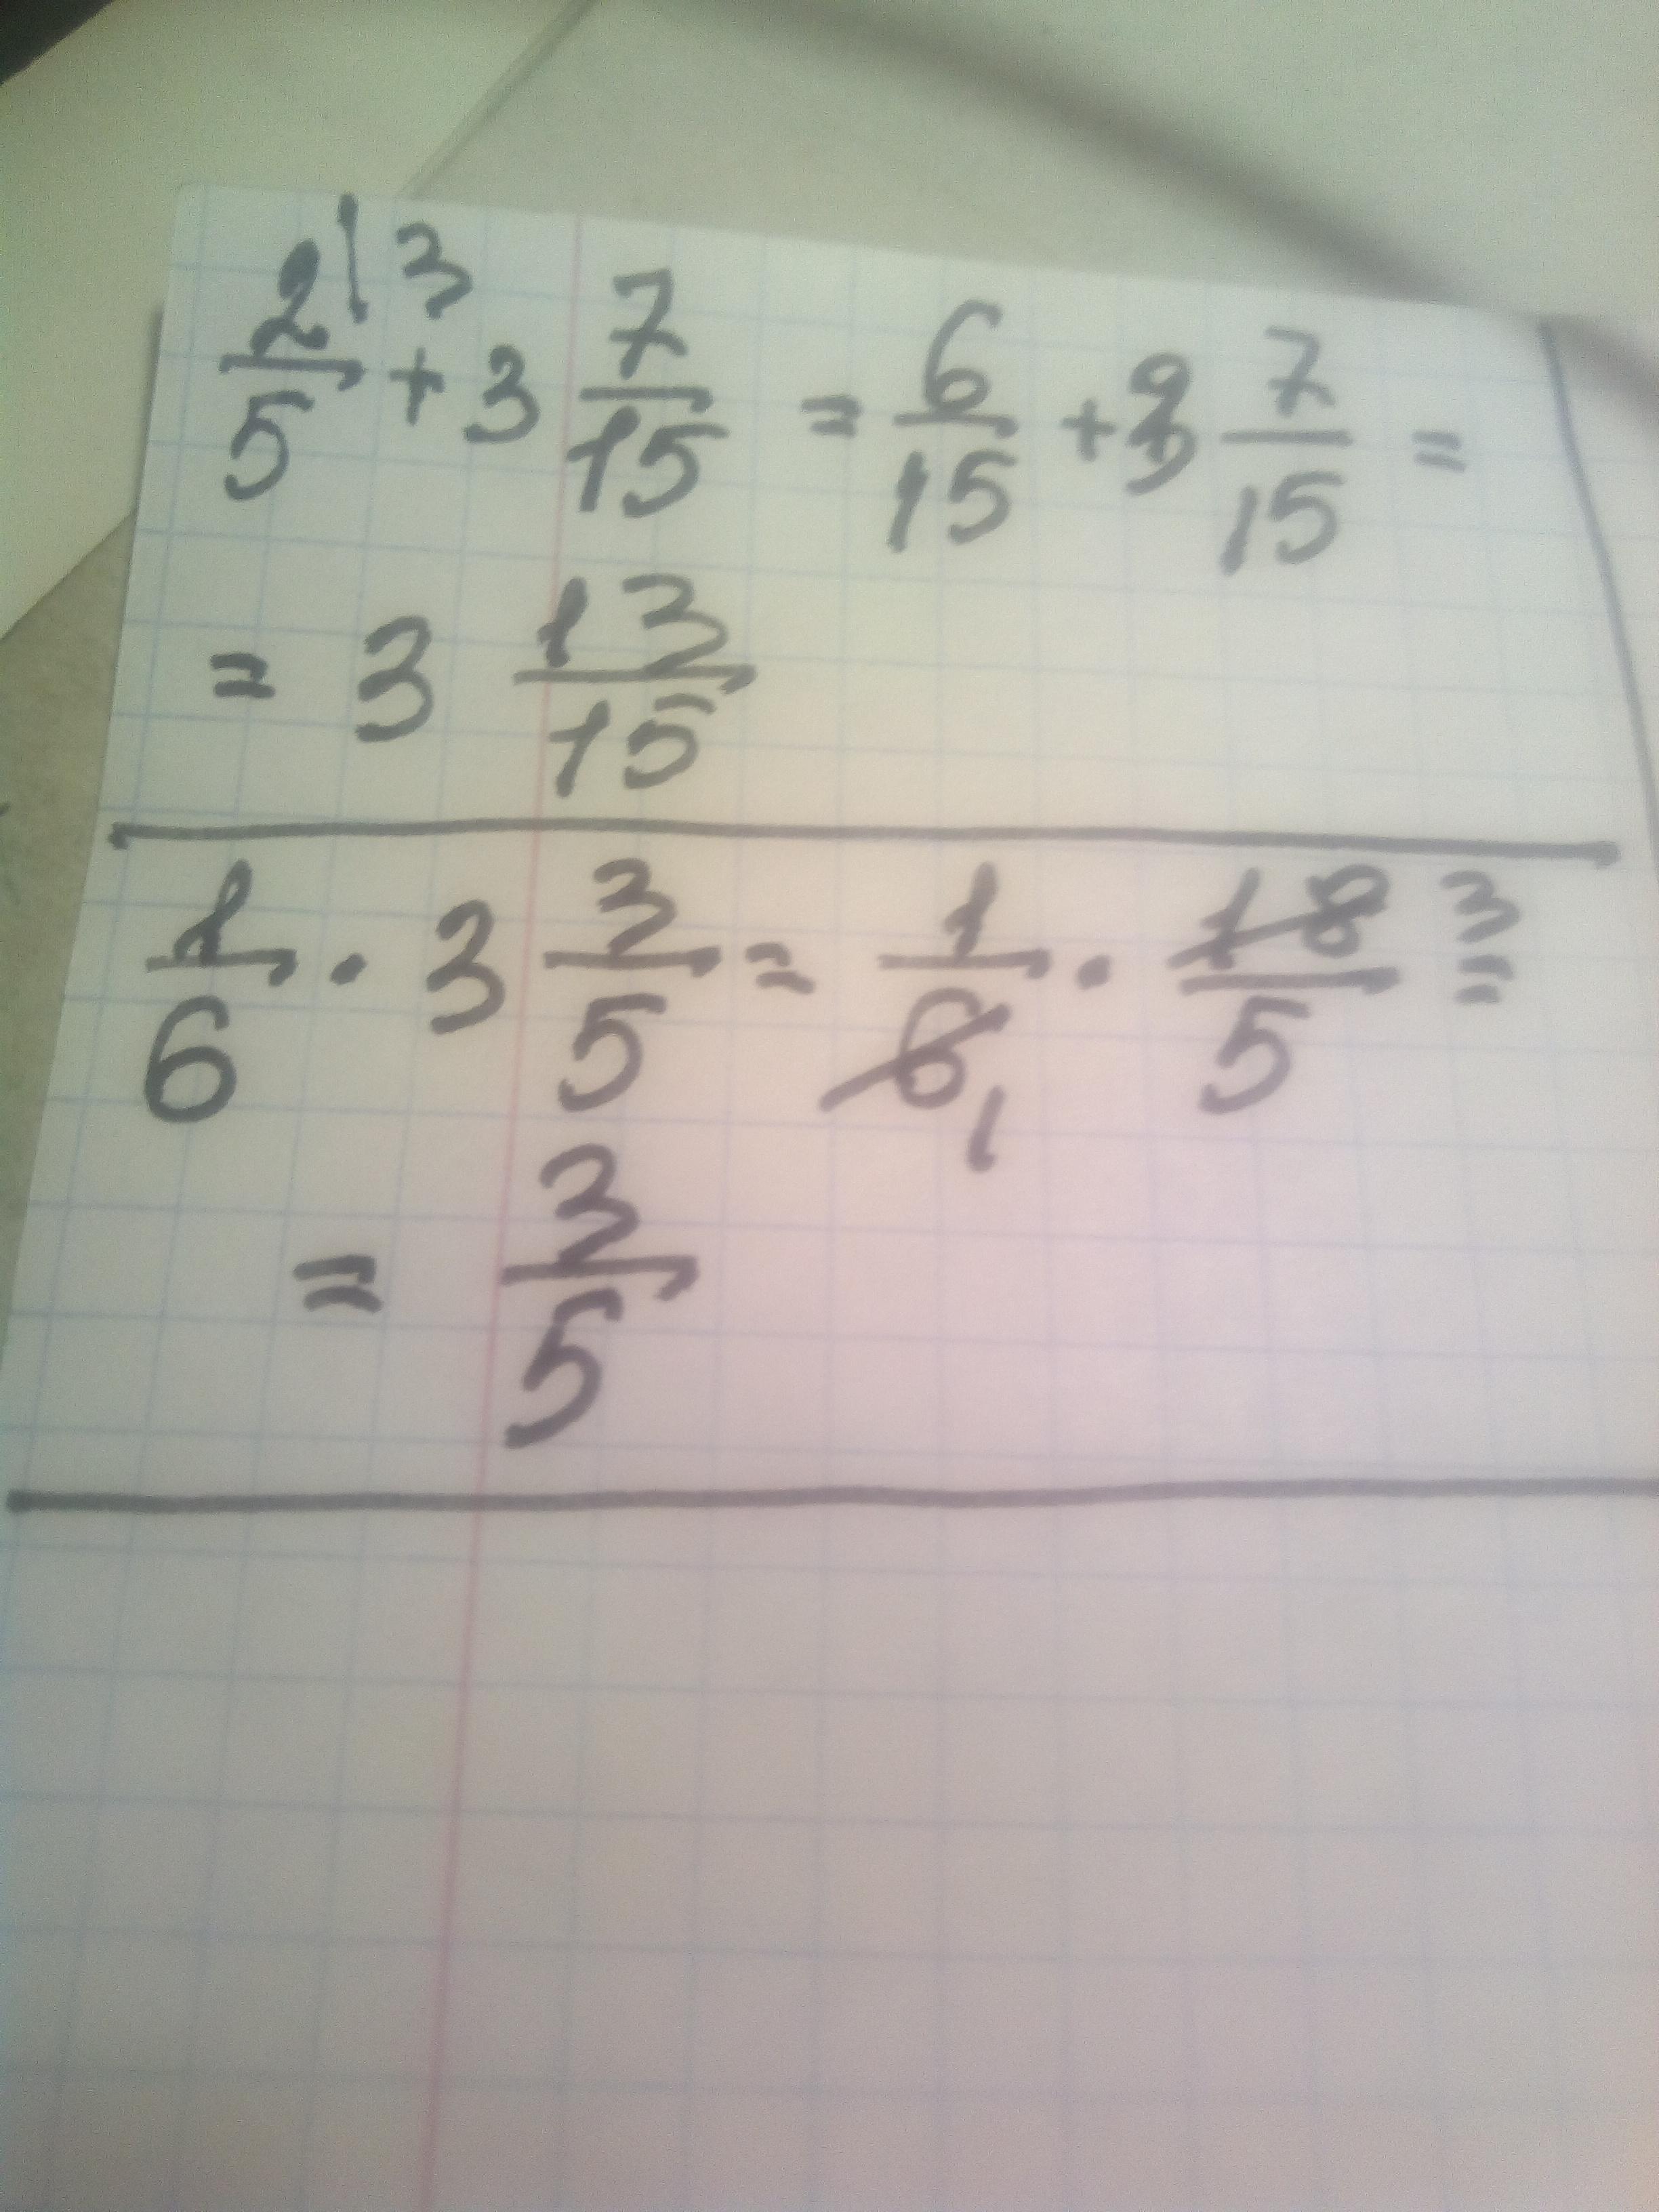 2/5 |3 + 3 7/15 = 6/15 + 3 7/15 =
= 3 13/15
1/6 · 3 3/5 = 1/6 1 · 18/5 3 =
= 3/5